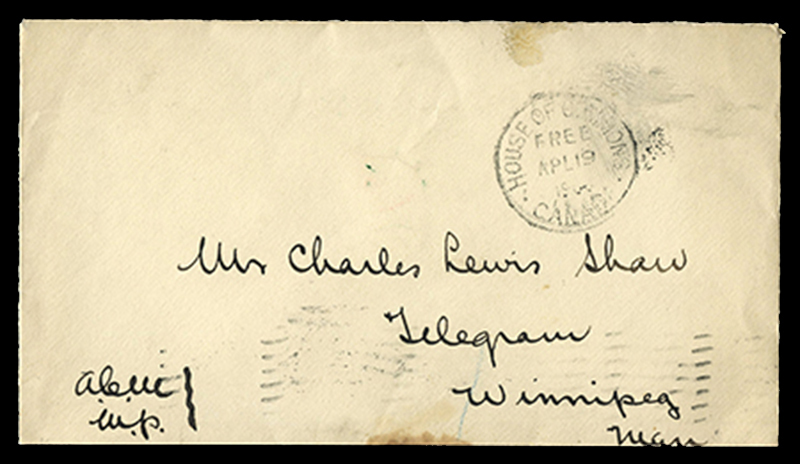 HOUSE OF COMMONS
FREE
APL 19
CANADA
Mr Charles Lewis Shaw
Telegram
Winnipeg
Man
M.P.